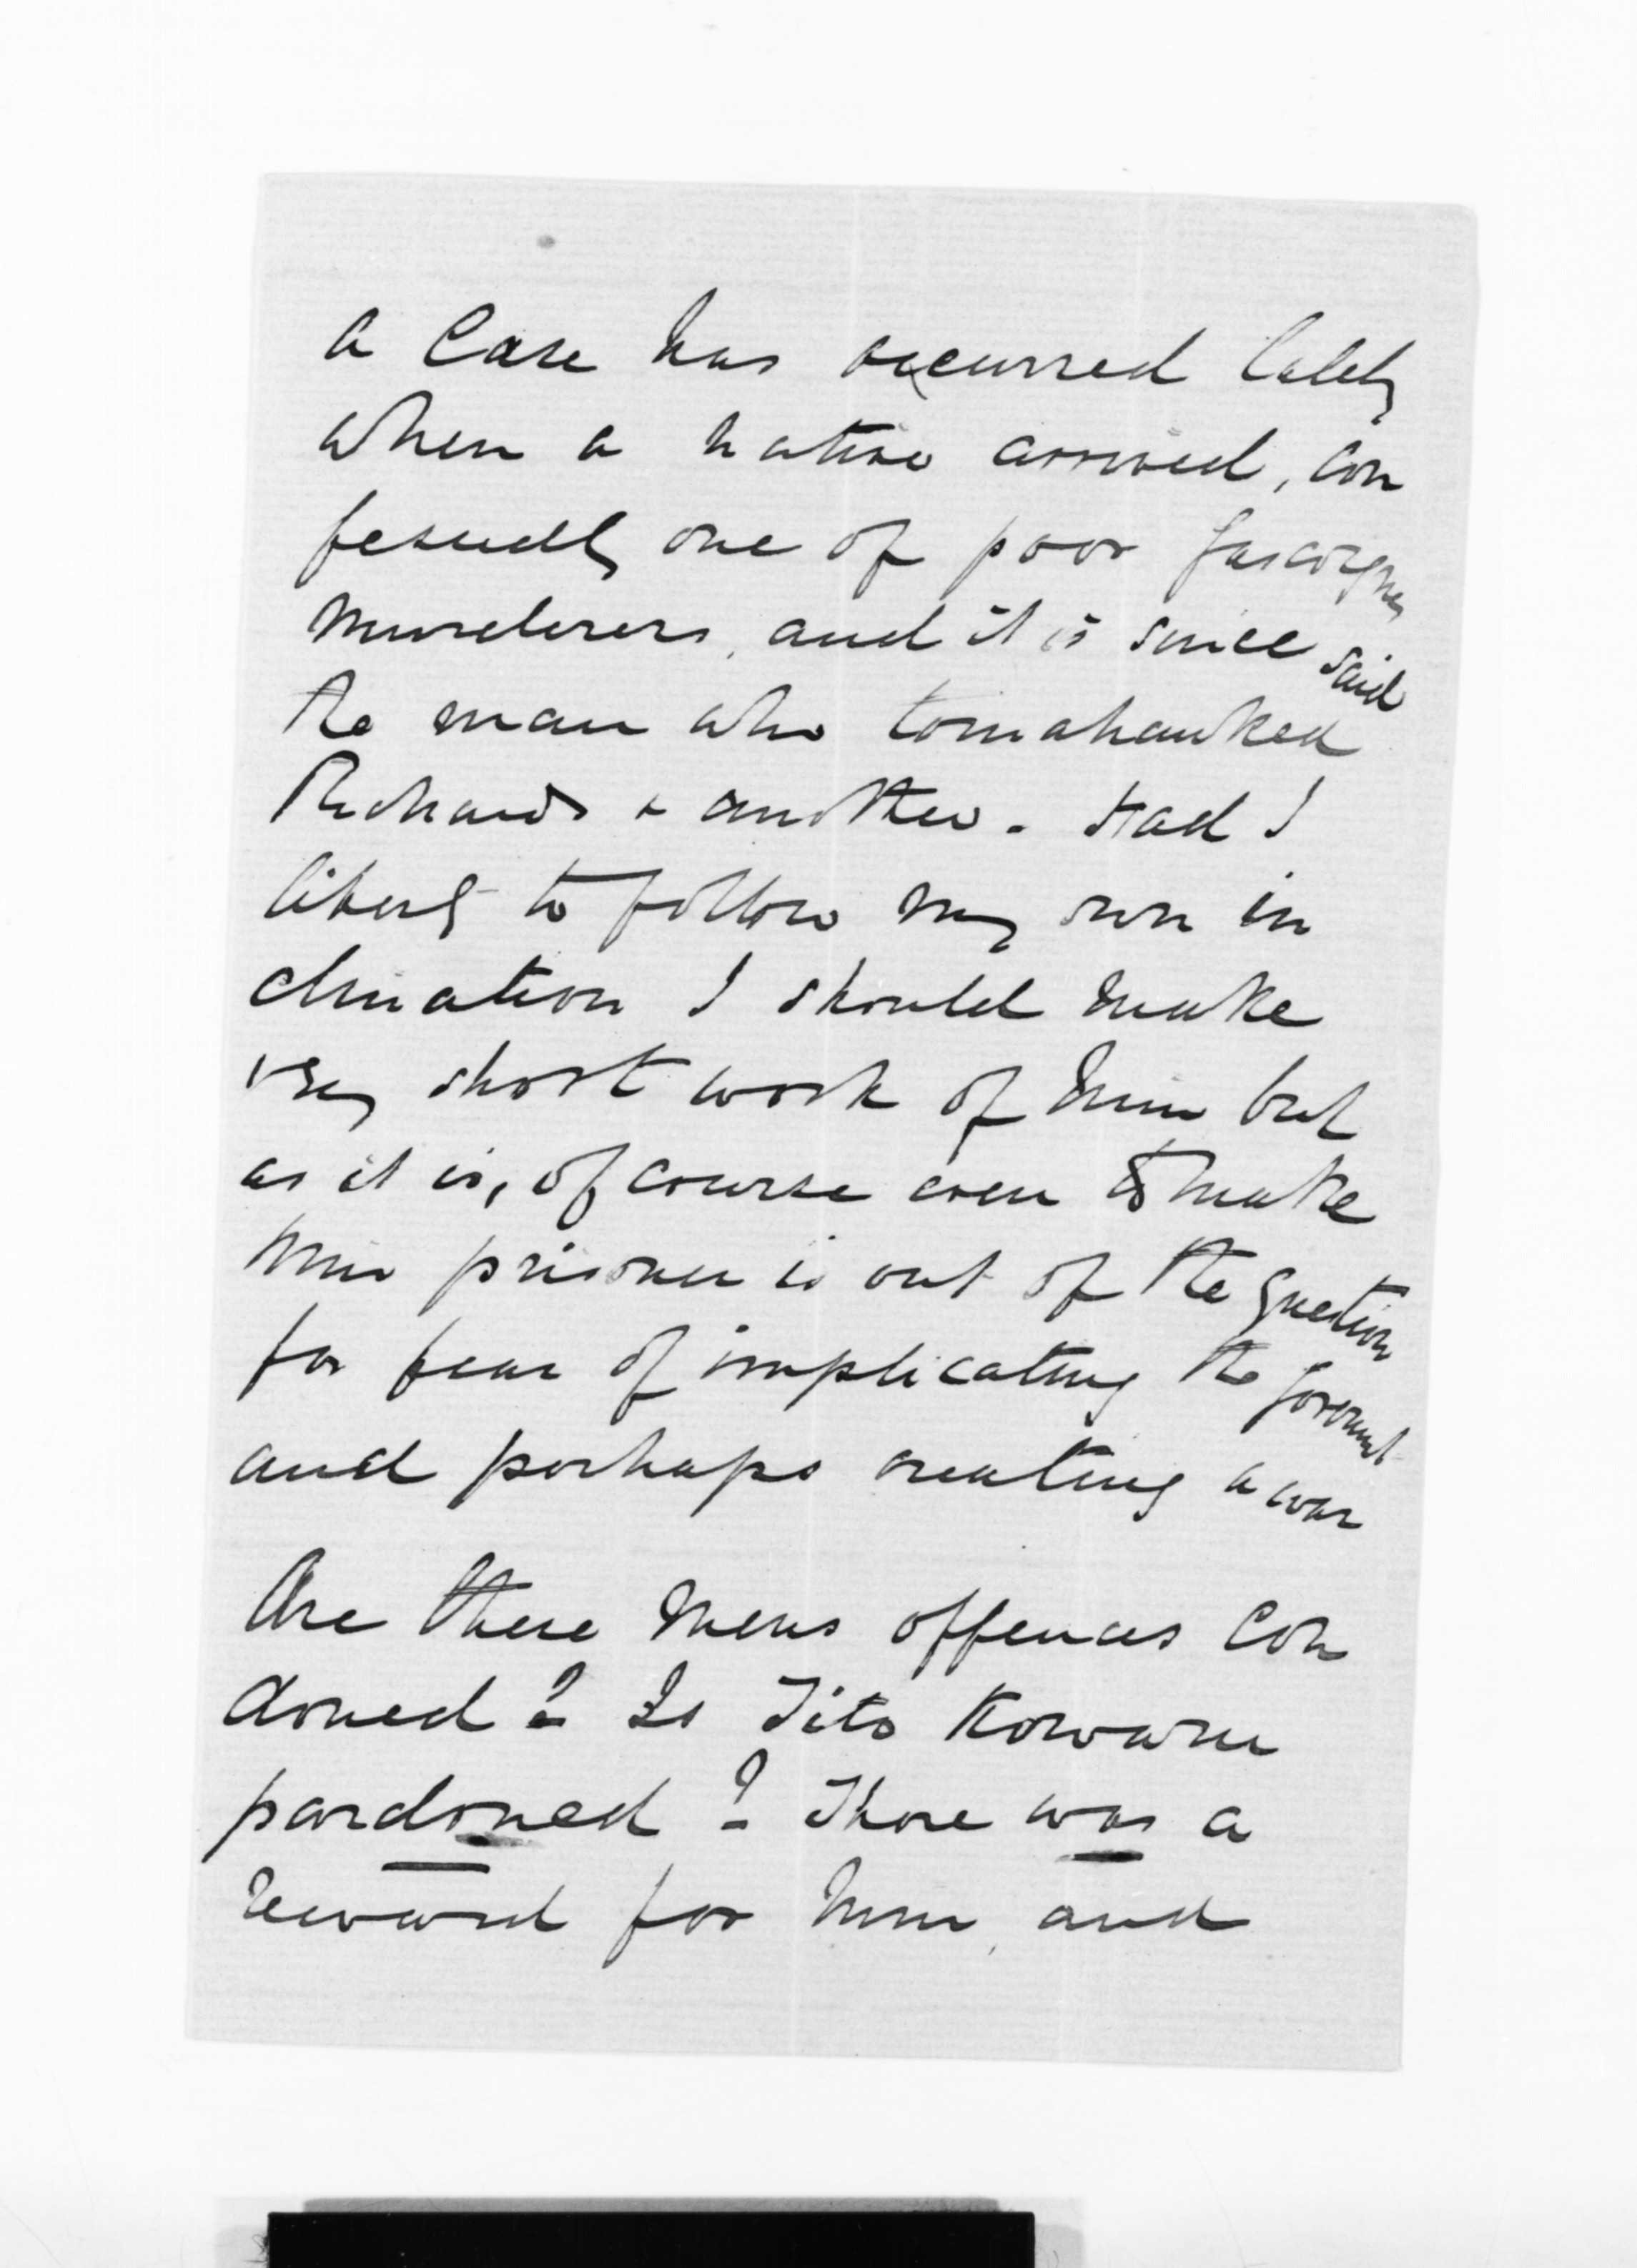 A Case has occurred lately
when a native arrived, con
fessedly one of poor Gascoignes
murderers, and it is since said
the man who tomahawked
Richards & another. Had I
liberty to follow my own in
clination I should make
very short work of him but
as it is, of course even to make
him prisoner is out of the question
for fear of implicating the Government
and perhaps creating a war
Are these mens offences con
doned? Is Tito Kowaru
pardoned? There was a
reward for him, and